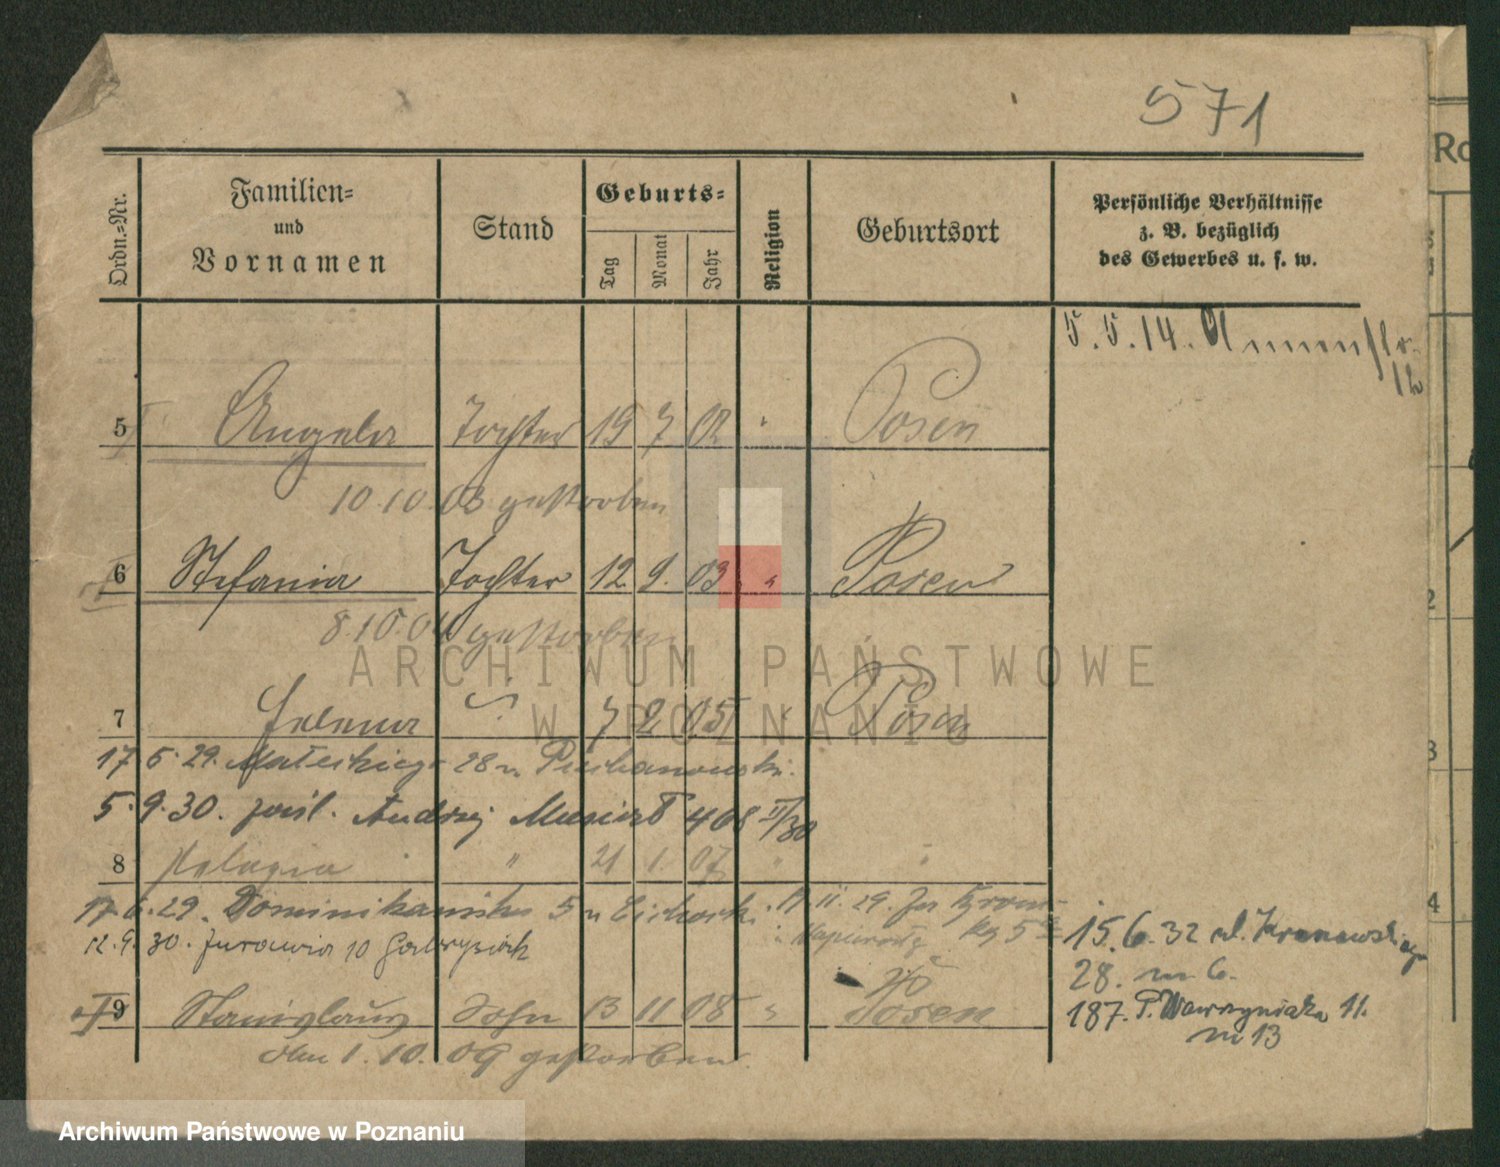 571
Ordn.=Nr.
Familien=
und
Vornamen
Stand
Geburts=
Tag
Monat
Jahr
Religion
Geburtsort
Persönliche Verhältnisse
z. B. bezüglich
des Gewerbes u. s. w.
Ro
5.5.14.
12
5 Angela Tochter 19 7 02 " Posen
10.10.03 gestorben
6 Stefania Tochter 12. 9. 03 " Posen
8.10.04 gestorben
7 Helena 7 2 05 " Posen
17 5.29. Matejki 28 u
5.9.30. Andrzej 408 II/30
8 Pelagia " 21 1. 07 " "
17.6.29. Dominikańska 5 u 11.29.
12.9.30. Żurawia 10 Gabrysiak
15.6.32 ul.
28. m 6.
9 Stanislaus Sohn 13 11 08 " Posen
187. P. Wawrzyniaka 11.
m 13
Am 1.10.09 gestorben.
2
3
4
ARCHIWUM PAŃSTWOWE
W POZNANIU
Archiwum Państwowe w Poznaniu